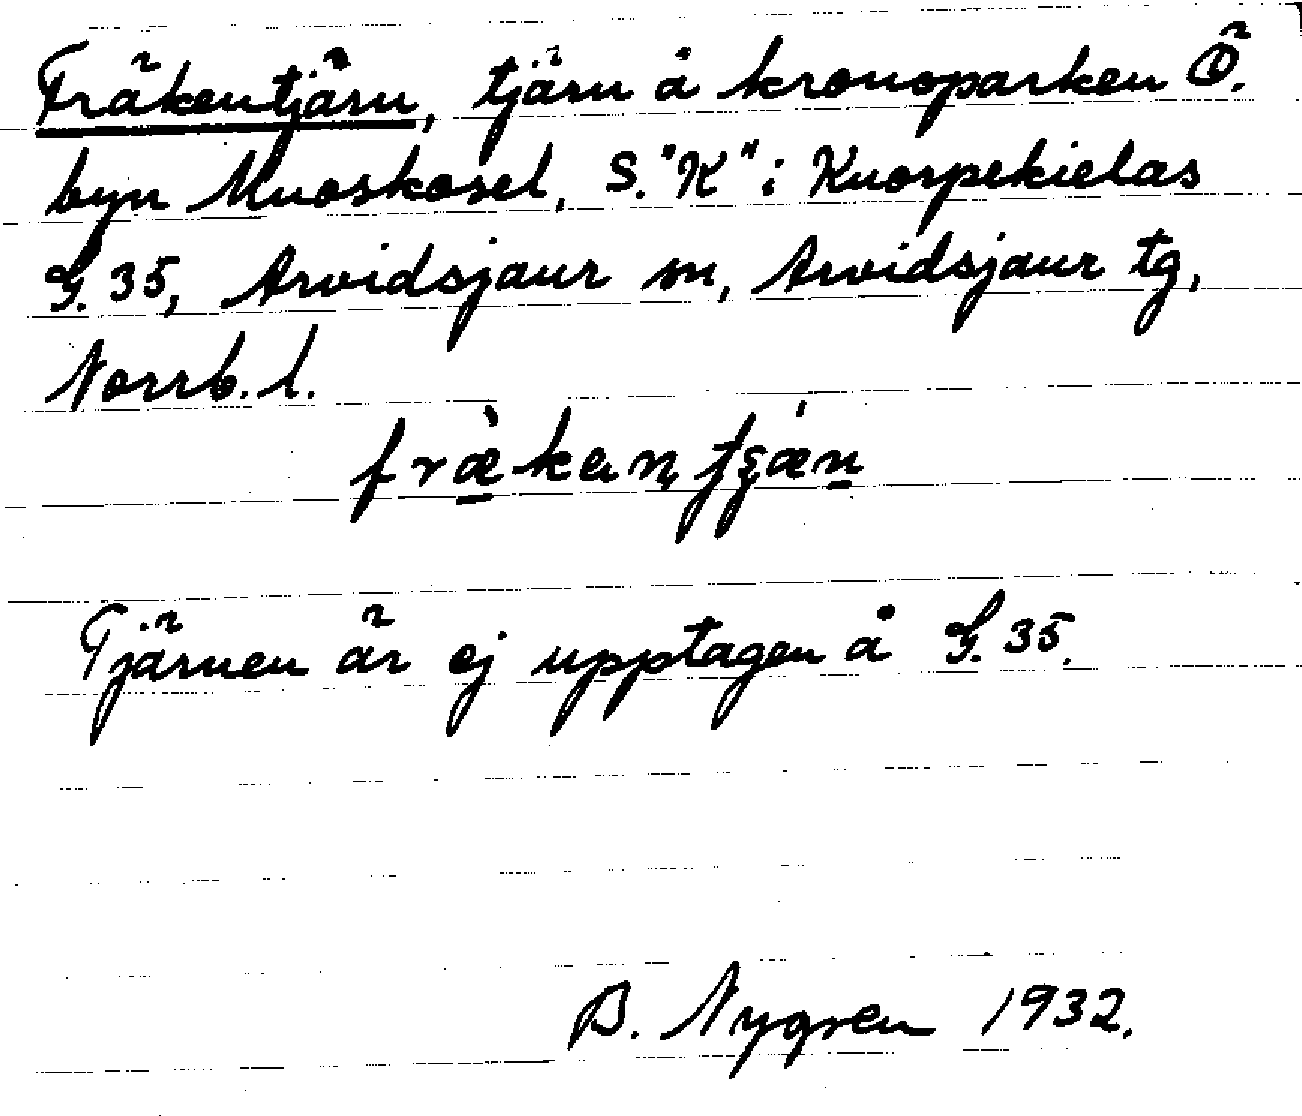 Fräkentjärn, tjärn å kronoparken Ö.
byn Muoskosel, S. "K" i Kuorpekielas
G. 35, Arvidsjaur sn, Arvidsjaur tg,
Norrb. l.
Tjärnen är ej upptagen å G. 35.
B. Nygren 1932.